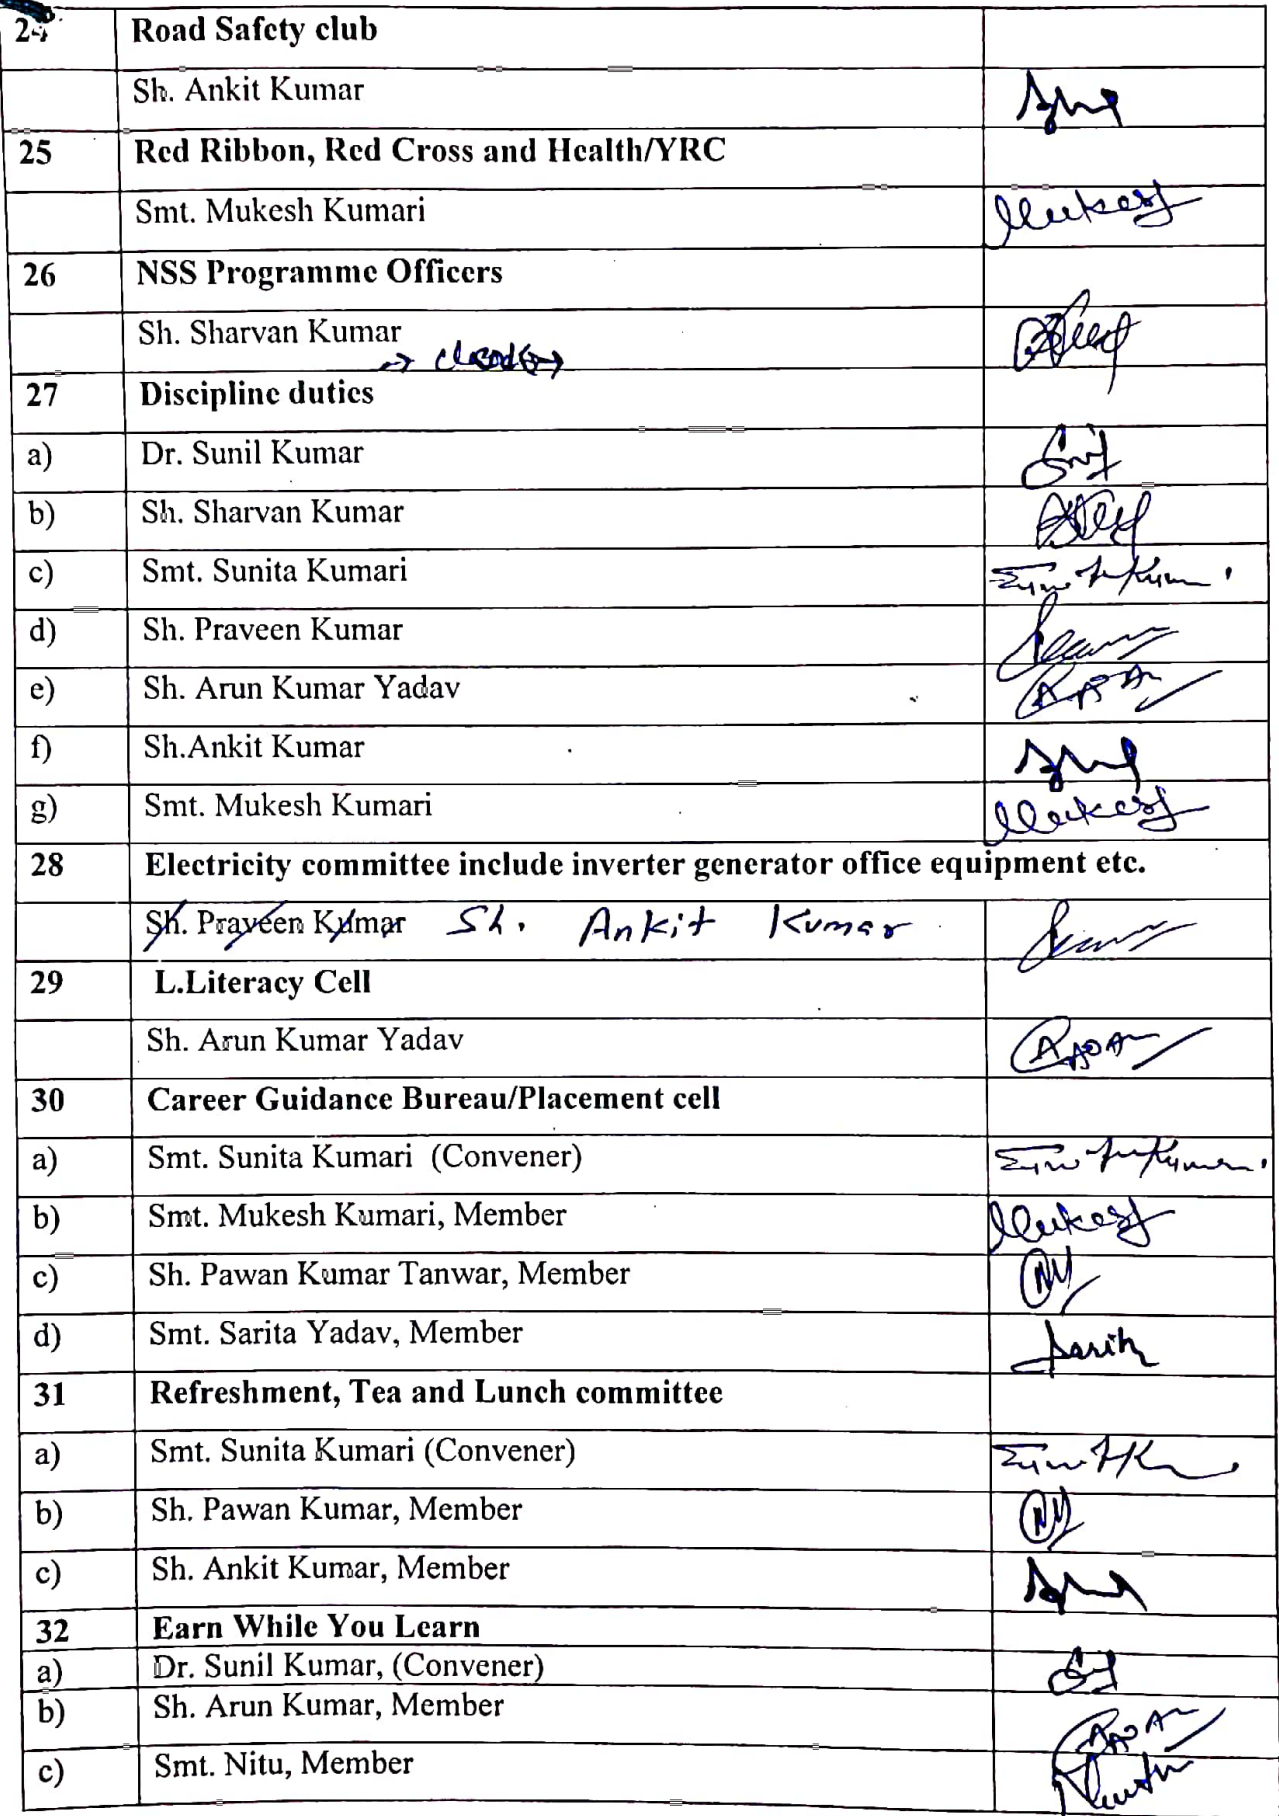 24 Road Safety club
Sh. Ankit Kumar
25 Red Ribbon, Red Cross and Health/YRC
Smt. Mukesh Kumari Mukesh
26 NSS Programme Officers
Sh. Sharvan Kumar
27 Discipline duties
a) Dr. Sunil Kumar
b) Sh. Sharvan Kumar
c) Smt. Sunita Kumari
d) Sh. Praveen Kumar
e) Sh. Arun Kumar Yadav
f) Sh.Ankit Kumar
g) Smt. Mukesh Kumari Mukesh
28 Electricity committee include inverter generator office equipment etc.
Sh. Praveen Kumar Sh. Ankit Kumar
29 L.Literacy Cell
Sh. Arun Kumar Yadav
30 Career Guidance Bureau/Placement cell
a) Smt. Sunita Kumari (Convener)
b) Smt. Mukesh Kumari, Member Mukesh
c) Sh. Pawan Kumar Tanwar, Member
d) Smt. Sarita Yadav, Member
31 Refreshment, Tea and Lunch committee
a) Smt. Sunita Kumari (Convener)
b) Sh. Pawan Kumar, Member
c) Sh. Ankit Kumar, Member
32 Earn While You Learn
a) Dr. Sunil Kumar, (Convener)
b) Sh. Arun Kumar, Member
c) Smt. Nitu, Member